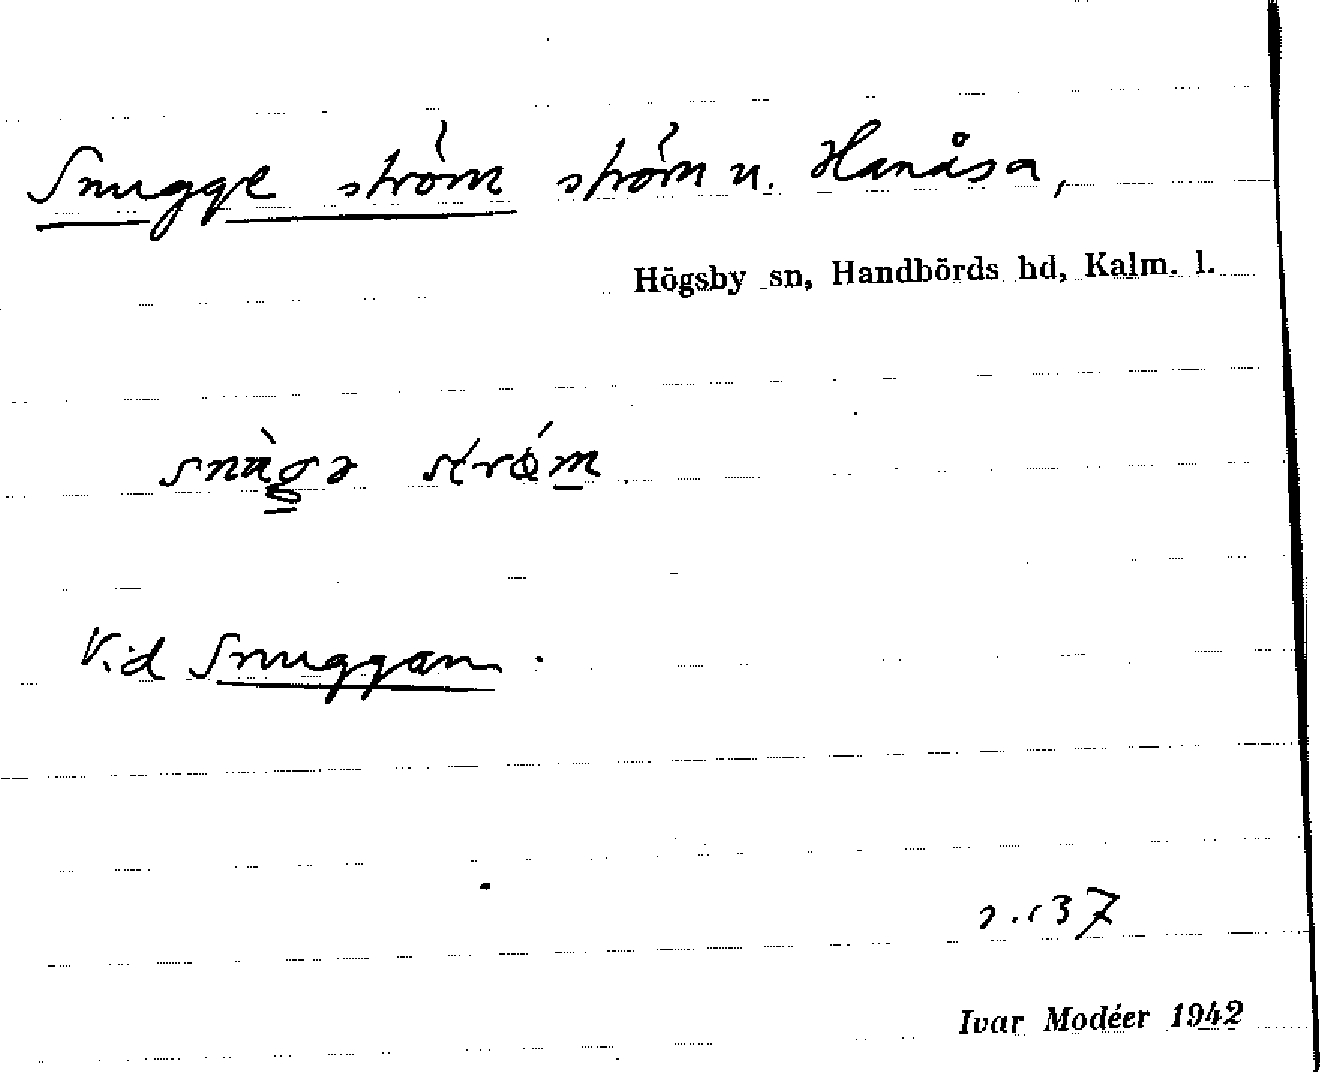 Snugge ström ström u. Hanåsa,
Högsby sn, Handbörds hd, Kalm. l.
Vid Snuggan.
s. 137
Ivar Modéer 1942